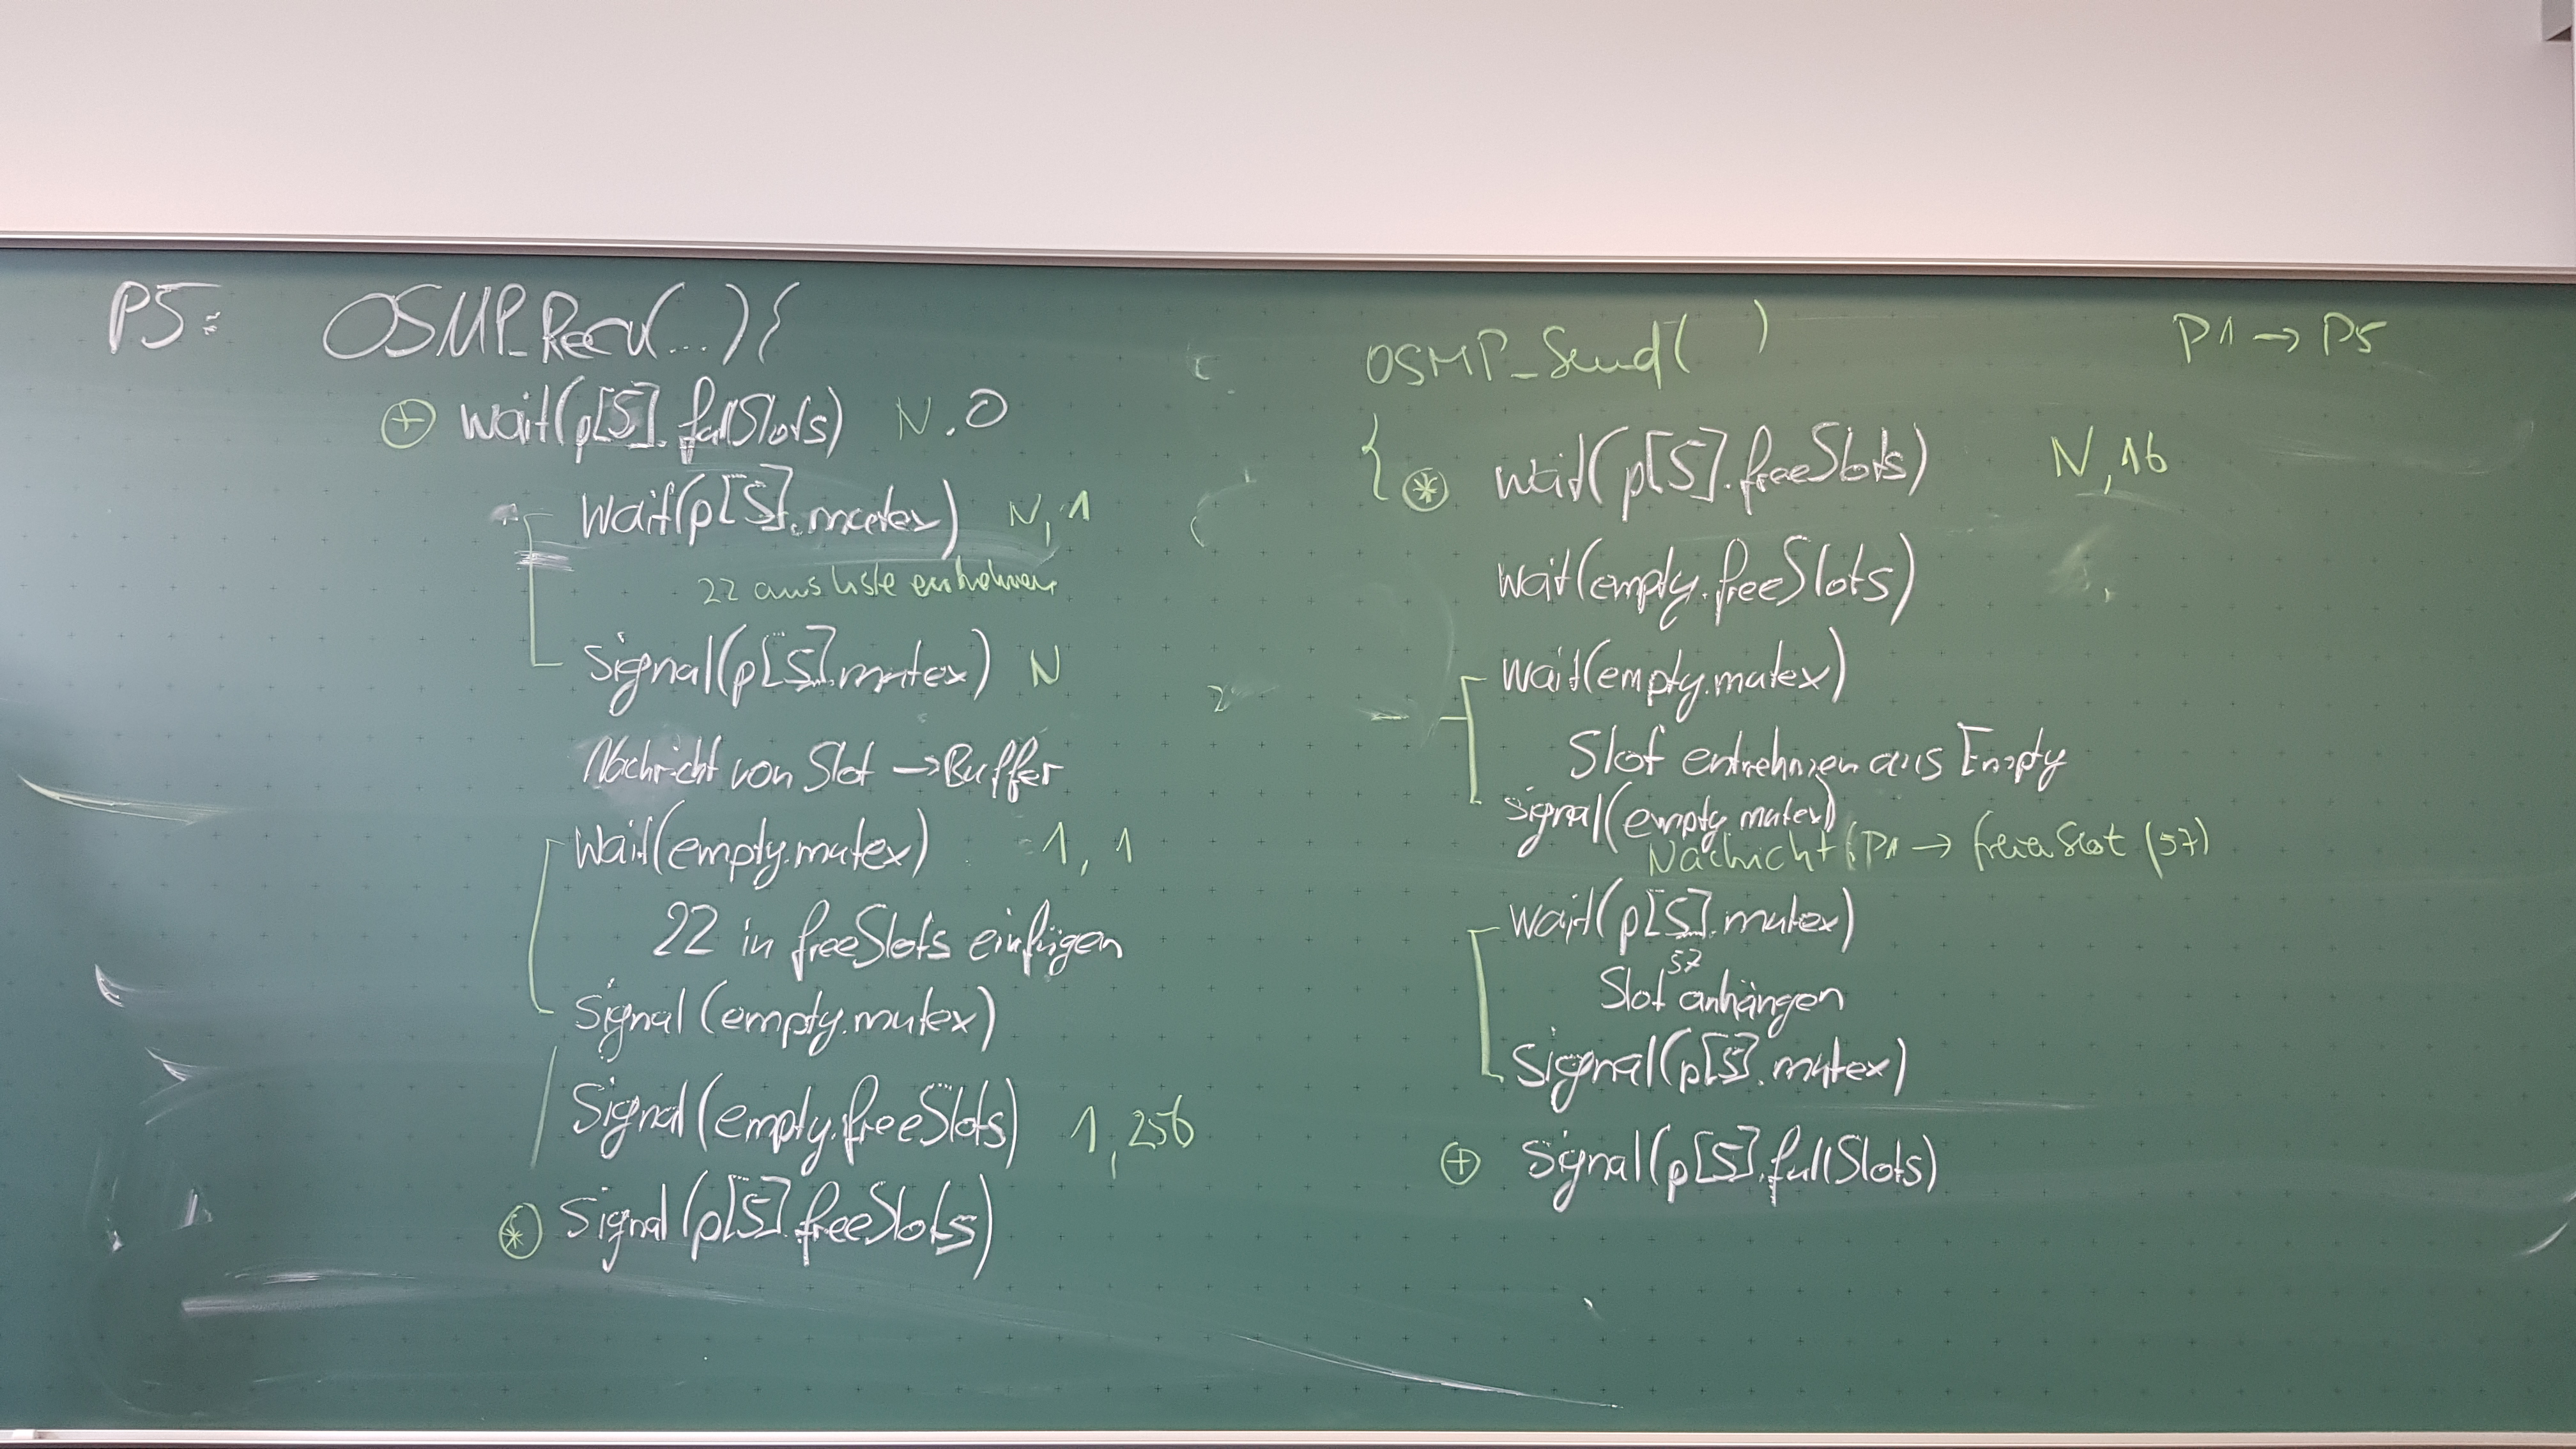 P5: OSMP_Recv(...){
⊕ wait(p[5].fullSlots) N,0
wait(p[5].mutex) N,1
22 aus Liste entnehmen
signal(p[5].mutex) N
Nachricht von Slot → Buffer
wait(empty.mutex) 1,1
22 in freeSlots einfügen
signal(empty.mutex)
signal(empty.freeSlots) 1,256
⊛ signal(p[5].freeSlots)
OSMP_Send( ) P1 → P5
{
⊛ wait(p[5].freeSlots) N,16
wait(empty.freeSlots)
wait(empty.mutex)
Slot entnehmen aus Empty
signal(empty.mutex)
Nachricht P1 → freier Slot (57)
wait(p[5].mutex)
57
Slot anhängen
signal(p[5].mutex)
⊕ signal(p[5].fullSlots)